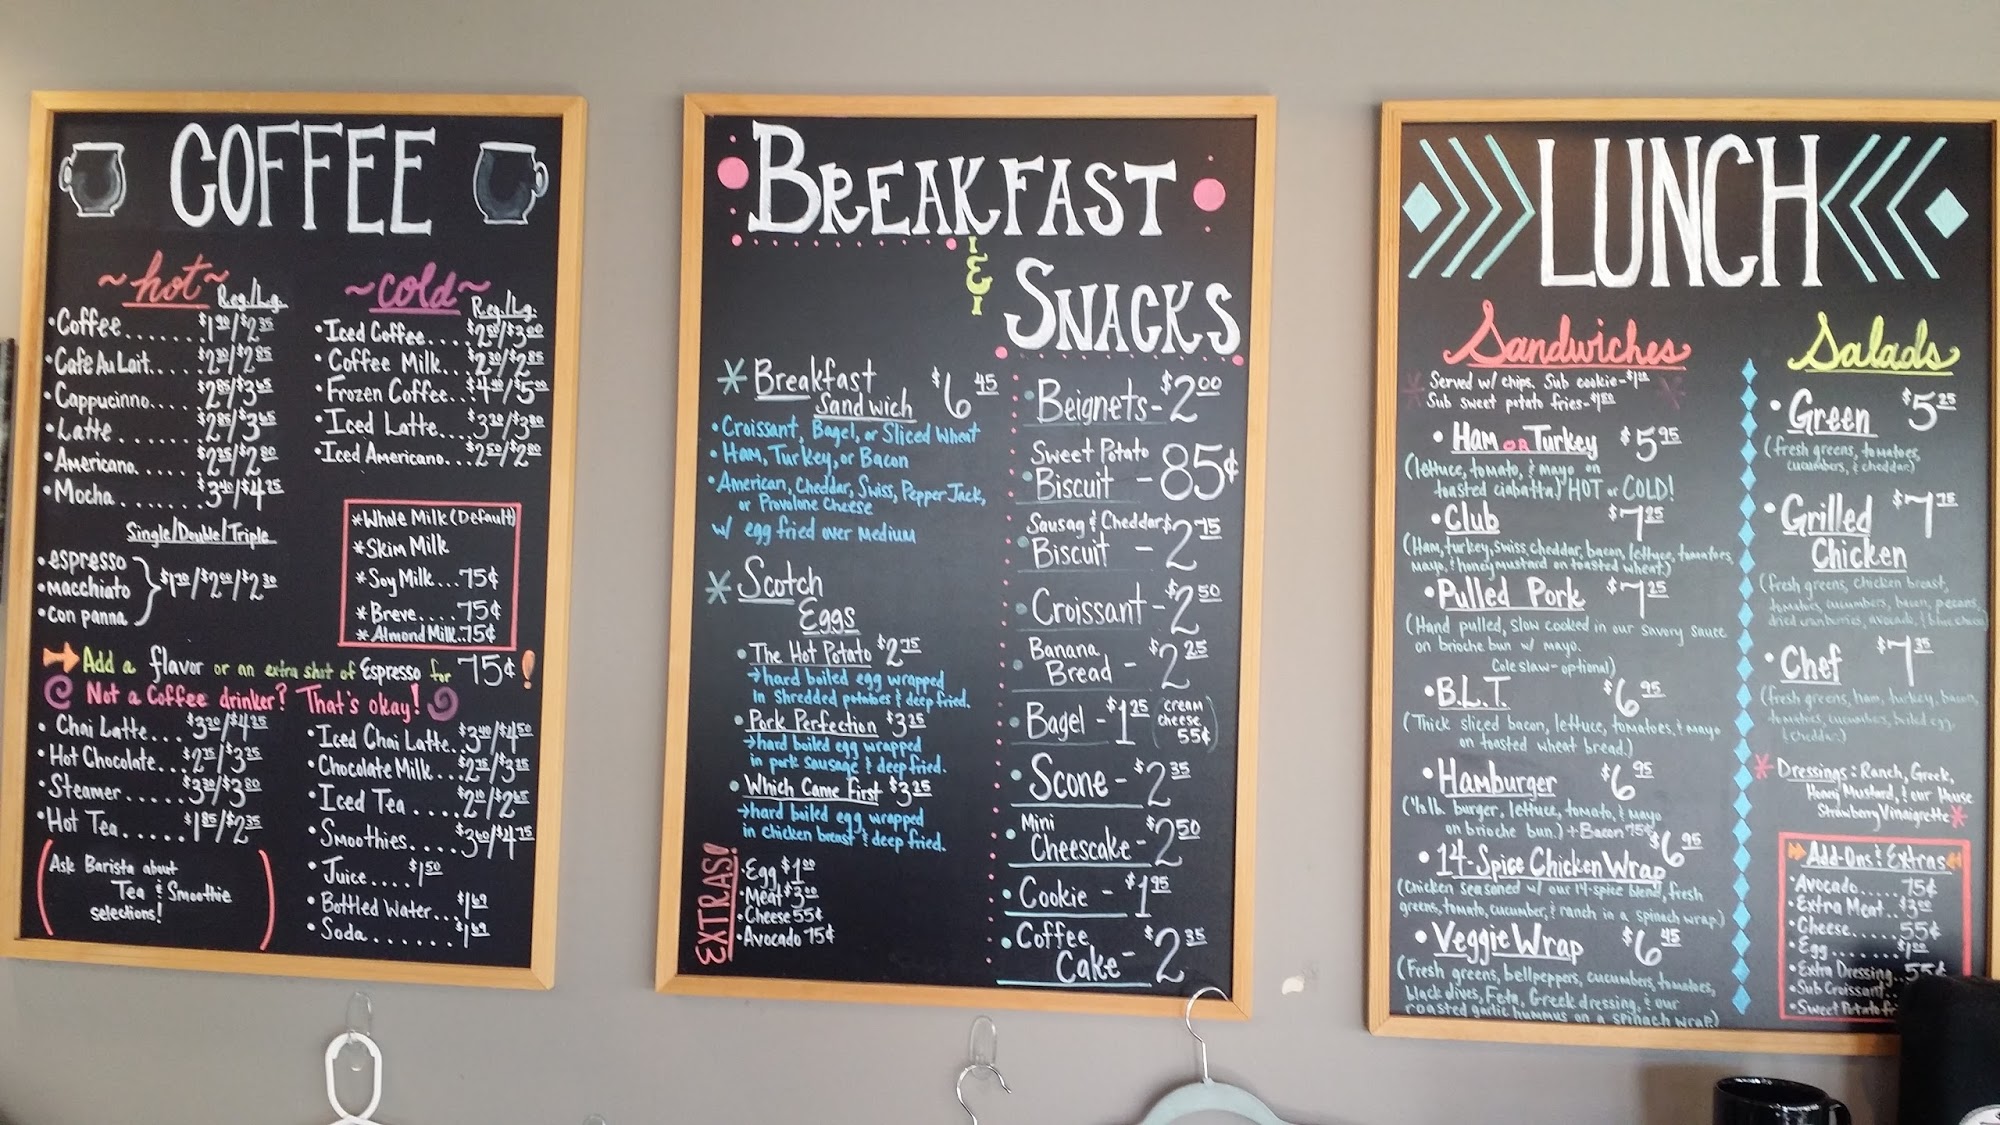 COFFEE
~hot~
Reg./Lg.
•Coffee.......$1.90/$2.35
•Café Au Lait....$2.30/$2.85
•Cappucinno....$2.85/$3.65
•Latte.......$2.85/$3.65
•Americano.....$2.25/$2.80
•Mocha.......$3.40/$4.25
Single/Double/Triple
•espresso
•macchiato
•con panna
/$2.00/$2.30
~cold~
Reg./Lg.
•Iced Coffee....$2.50/$3.00
•Coffee Milk...$2.30/$2.85
•Frozen Coffee...$4.00/$5.00
•Iced Latte....$3.20/$3.80
•Iced Americano...$2.50/$2.80
*Whole Milk (Default)
*Skim Milk
*Soy Milk...75¢
*Breve.....75¢
*Almond Milk..75¢
Add a flavor or an extra shot of Espresso for 75¢!
Not a Coffee drinker? That's okay!
•Chai Latte...$3.20/$4.25
•Hot Chocolate...$2.75/$3.25
•Steamer.....$3.30/$3.80
•Hot Tea.....$1.85/$2.35
(Ask Barista about
Tea & Smoothie
selections!)
•Iced Chai Latte..$3.40/$4.50
•Chocolate Milk...$2.75/$3.25
•Iced Tea....$2.10/$2.65
•Smoothies....$3.60/$4.75
•Juice....$1.50
•Bottled Water...$1.69
•Soda.......$1.69
BREAKFAST
&
SNACKS
*Breakfast
Sandwich $6.45
•Croissant, Bagel, or Sliced Wheat
•Ham, Turkey, or Bacon
•American, Cheddar, Swiss, Pepper Jack,
or Provolone Cheese
w/ egg fried over medium
*Scotch
Eggs
•The Hot Potato $2.75
→hard boiled egg wrapped
in Shredded potatoes & deep fried.
•Pork Perfection $3.25
→hard boiled egg wrapped
in pork sausage & deep fried.
•Which Came First $3.25
→hard boiled egg wrapped
in chicken breast & deep fried.
EXTRAS!
•Egg $1.00
•Meat $3.00
•Cheese 55¢
•Avocado 75¢
•Beignets-$2.00
Sweet Potato
•Biscuit - 85¢
Sausag & Cheddar
•Biscuit - $2.75
•Croissant-$2.50
•Banana
Bread - $2.25
•Bagel-$1.25 (cream
cheese
55¢)
•Scone-$2.35
•Mini
Cheescake-$2.50
•Cookie - $1.95
•Coffee
Cake- $2.35
LUNCH
Sandwiches
*Served w/ chips. Sub cookie-
Sub sweet potato fries-$1.50*
•Ham or Turkey $5.95
(lettuce, tomato, & mayo on
toasted ciabatta) HOT or COLD!
•Club $7.25
(Ham, turkey, swiss, cheddar, bacon, lettuce, tomatoes,
mayo, & honey mustard on toasted wheat.)
•Pulled Pork $7.25
(Hand pulled, slow cooked in our savory sauce
on brioche bun w/ mayo.
Cole slaw-optional)
•B.L.T. $6.95
(Thick sliced bacon, lettuce, tomatoes, & mayo
on toasted wheat bread.)
•Hamburger $6.95
(⅓lb. burger, lettuce, tomato, & mayo
on brioche bun.) +Bacon 75¢
•14-Spice Chicken Wrap $6.95
(Chicken seasoned w/ our 14-spice blend, fresh
greens, tomato, cucumber, & ranch in a spinach wrap.)
•Veggie Wrap $6.45
(Fresh greens, bellpeppers, cucumbers, tomatoes,
black olives, Feta, Greek dressing, & our
roasted garlic hummus on a spinach wrap.)
Salads
•Green $5.25
(fresh greens, tomatoes,
cucumbers, & cheddar)
•Grilled $7.75
Chicken
(fresh greens, chicken breast,
tomatoes, cucumbers, bacon, pecans,
dried cranberries, avocado, & blue cheese
•Chef $7.35
(fresh greens, ham, turkey, bacon,
tomatoes, cucumbers, boiled egg,
& cheddar)
*Dressings: Ranch, Greek,
Honey Mustard, & our House
Strawberry Vinaigrette*
Add-Ons & Extras
•Avocado......75¢
•Extra Meat..$3.00
•Cheese......55¢
•Egg.......$1.00
•Extra Dressing..55¢
•Sub Croissant..
•Sweet Potato fr